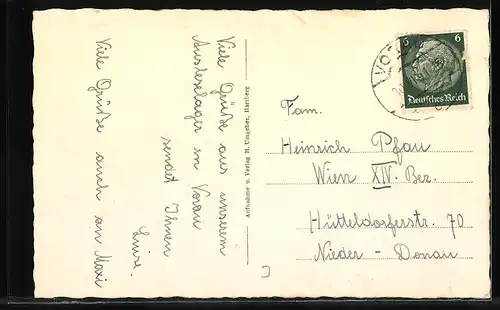 Viele Grüße aus unserem
Ausleselager in Vorau
sendet Ihnen
Luise.
Viele Grüße auch an Maxi
Aufnahme u. Verlag H. Umgeher, Hartberg
6 6
Deutsches Reich
VO
Fam.
Heinrich Pfau
Wien XIV. Bez.
Hütteldorferstr. 70
Nieder - Donau